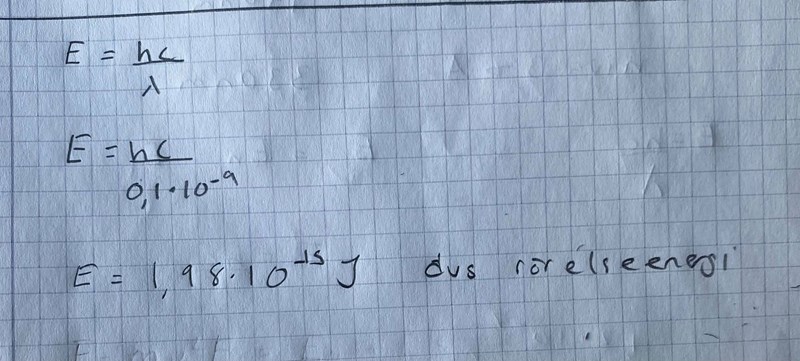 E = hc
λ
E = hc
0,1·10⁻⁹
E = 1,98·10⁻¹⁵ J dvs rörelseenergi